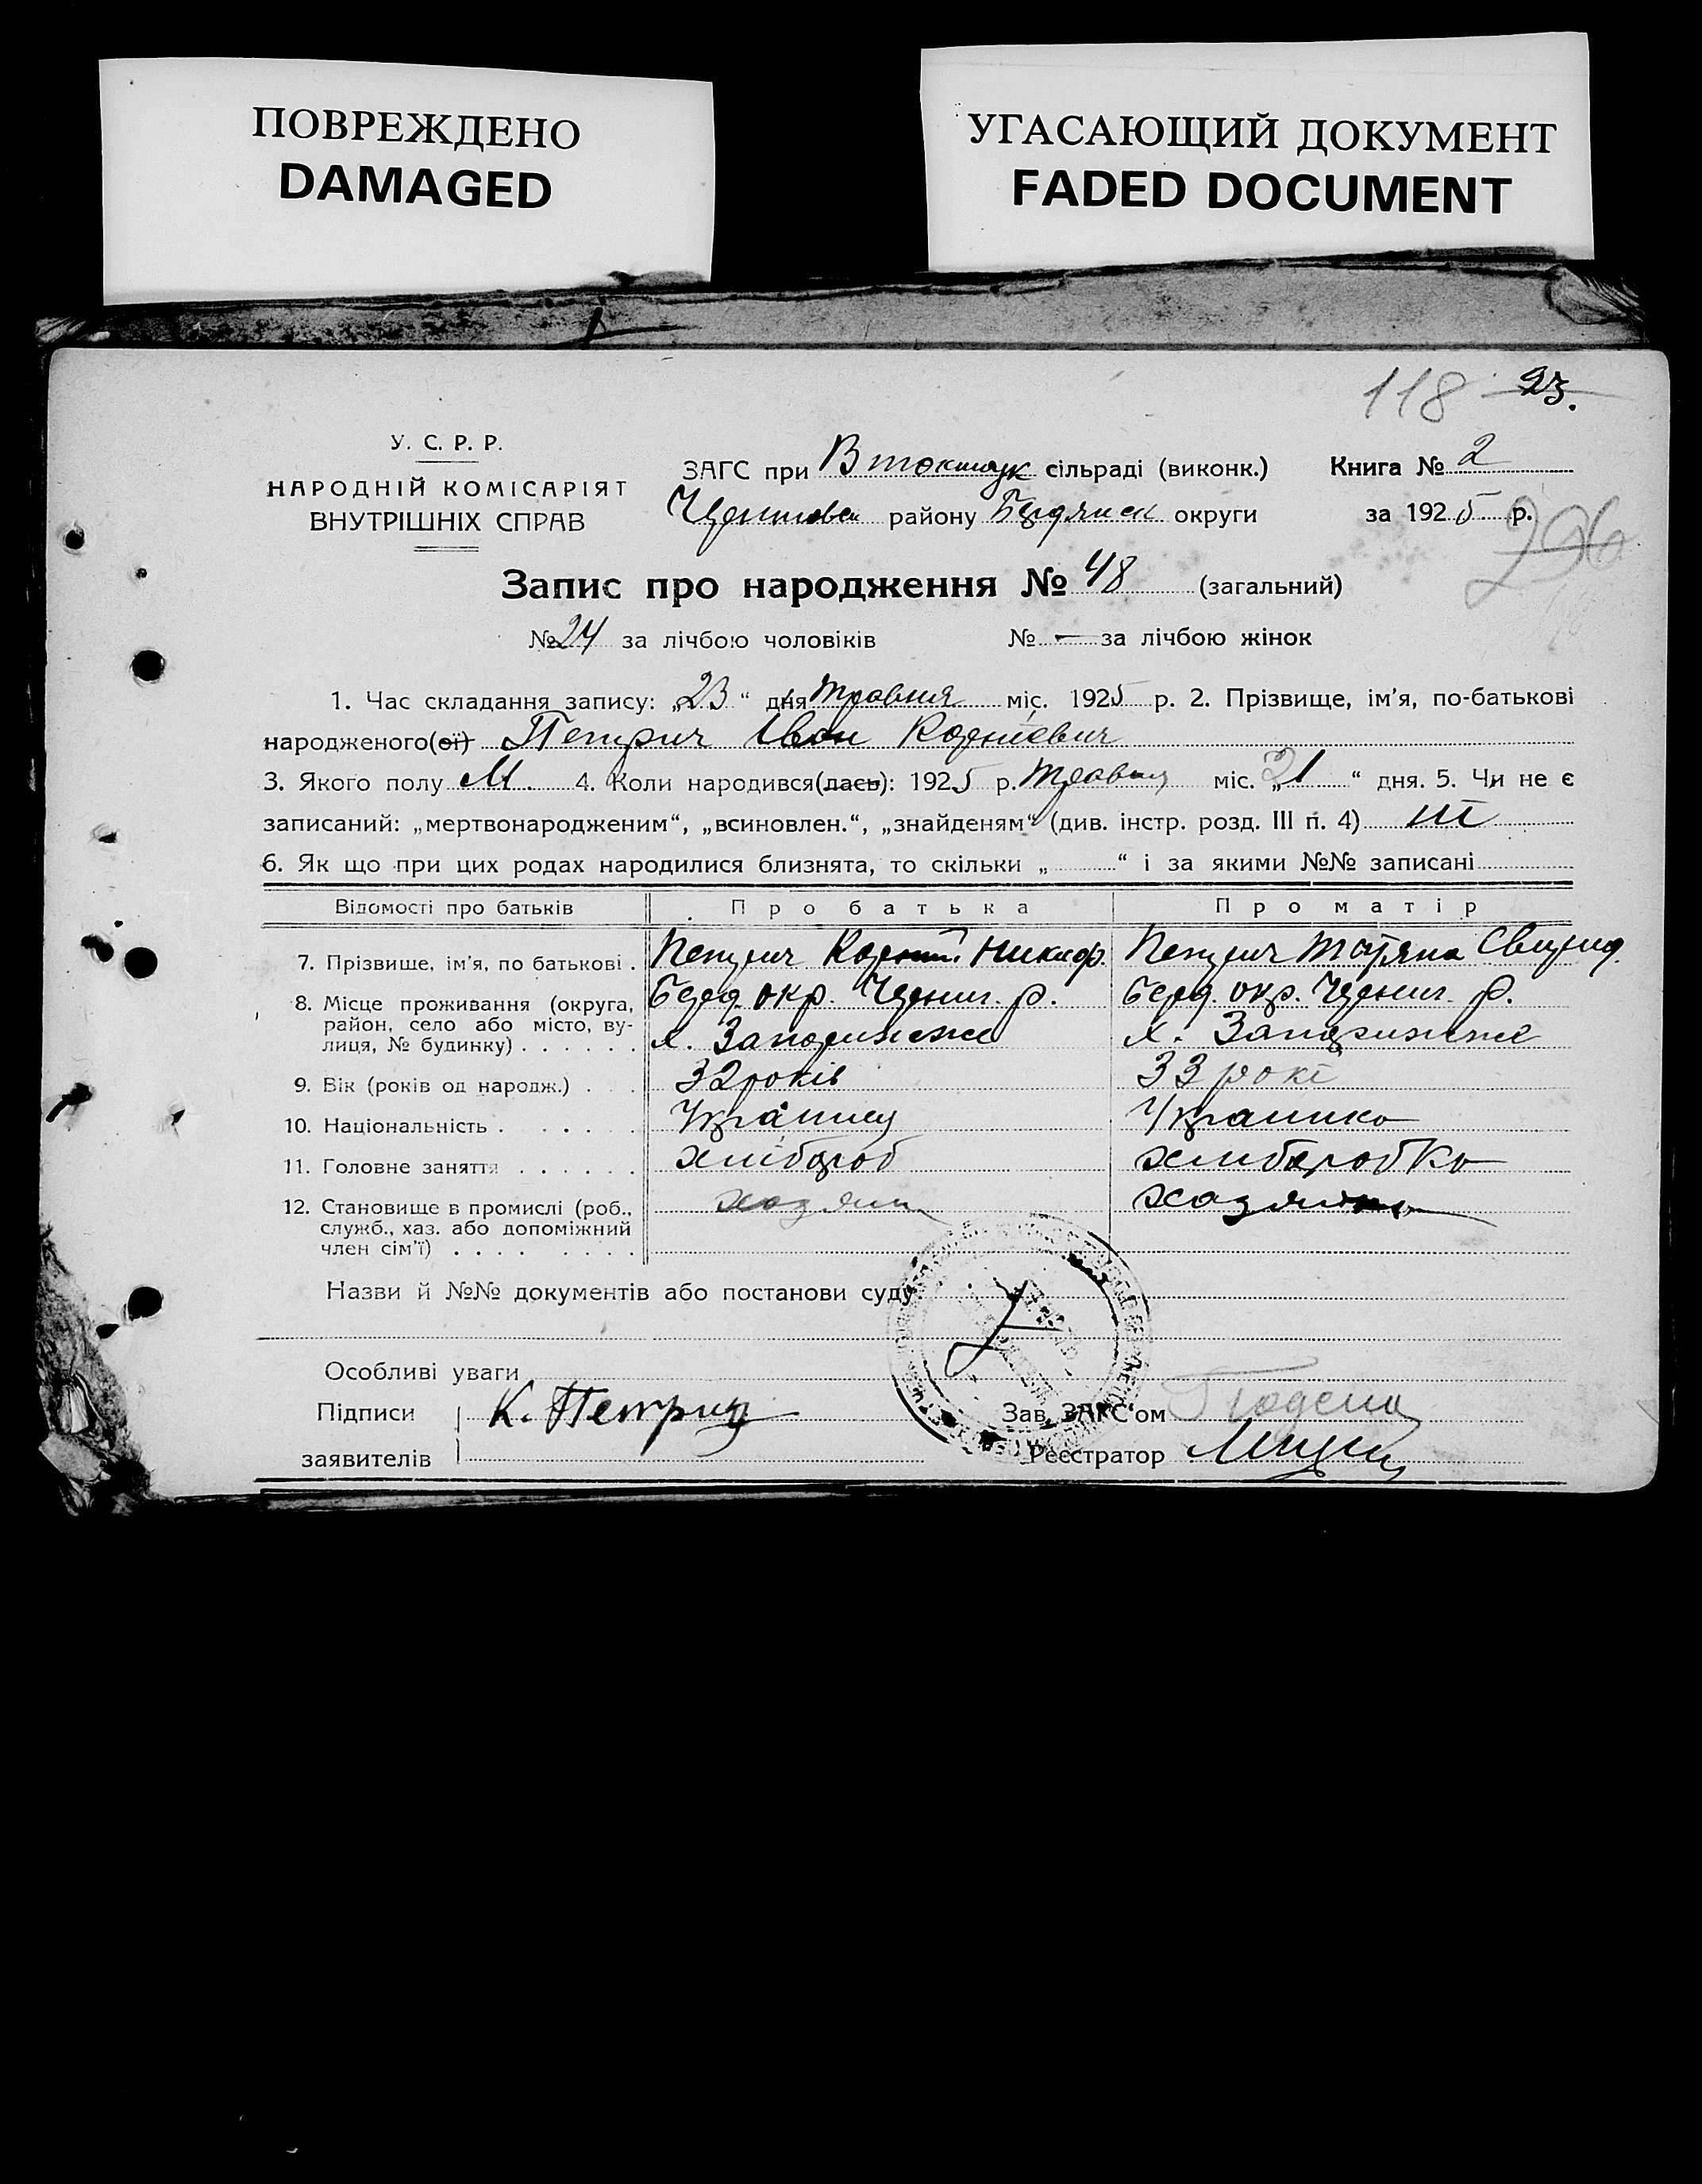 ПОВРЕЖДЕНО
DAMAGED
УГАСАЮЩИЙ ДОКУМЕНТ
FADED DOCUMENT
118 23.
У. С. Р. Р.
НАРОДНІЙ КОМІСАРІЯТ
ВНУТРІШНІХ СПРАВ
ЗАГС при В токмак сільраді (виконк.)
района району Бердянск округи
Книга № 2
за 1925 р.
296
Запис про народження № 48 (загальний)
№ 24 за лічбою чоловіків № — за лічбою жінок
1. Час складання запису: „23“ дня травня міс. 1925 р. 2. Прізвище, ім’я, по-батькові
народженого(ої) Петрич Іван Корнієвич
3. Якого полу М. 4. Коли народився(лась): 1925 р. травня міс. „21“ дня. 5. Чи не є
записаний: „мертвонародженим“, „всиновлен.“, „знайденям“ (див. інстр. розд. III п. 4)
6. Як що при цих родах народилися близнята, то скільки „ “ і за якими №№ записані
Відомості про батьків Про батька Про матір
7. Прізвище, ім’я, по батькові . Петрич Корній Никиф. Петрич Татяна Свирид.
8. Місце проживання (округа, Берд. окр. Черниг. р. Берд. окр. Черниг. р.
район, село або місто, ву-
лиця, № будинку) . . . . . . х. Запорижже х. Запорижже
9. Вік (років од народж.) . . . 32 років 33 рокі
10. Національність . . . . . Украинец Украинка
11. Головне заняття . . . . . . хлібороб хлиборобка
12. Становище в промислі (роб., хазяин хазяйка
служб., хаз. або допоміжний
член сім’ї) . . . . . . . .
Назви й №№ документів або постанови суду
Особливі уваги
Підписи К. Петрич
заявителів
Зав. ЗАГС‘ом
Реєстратор